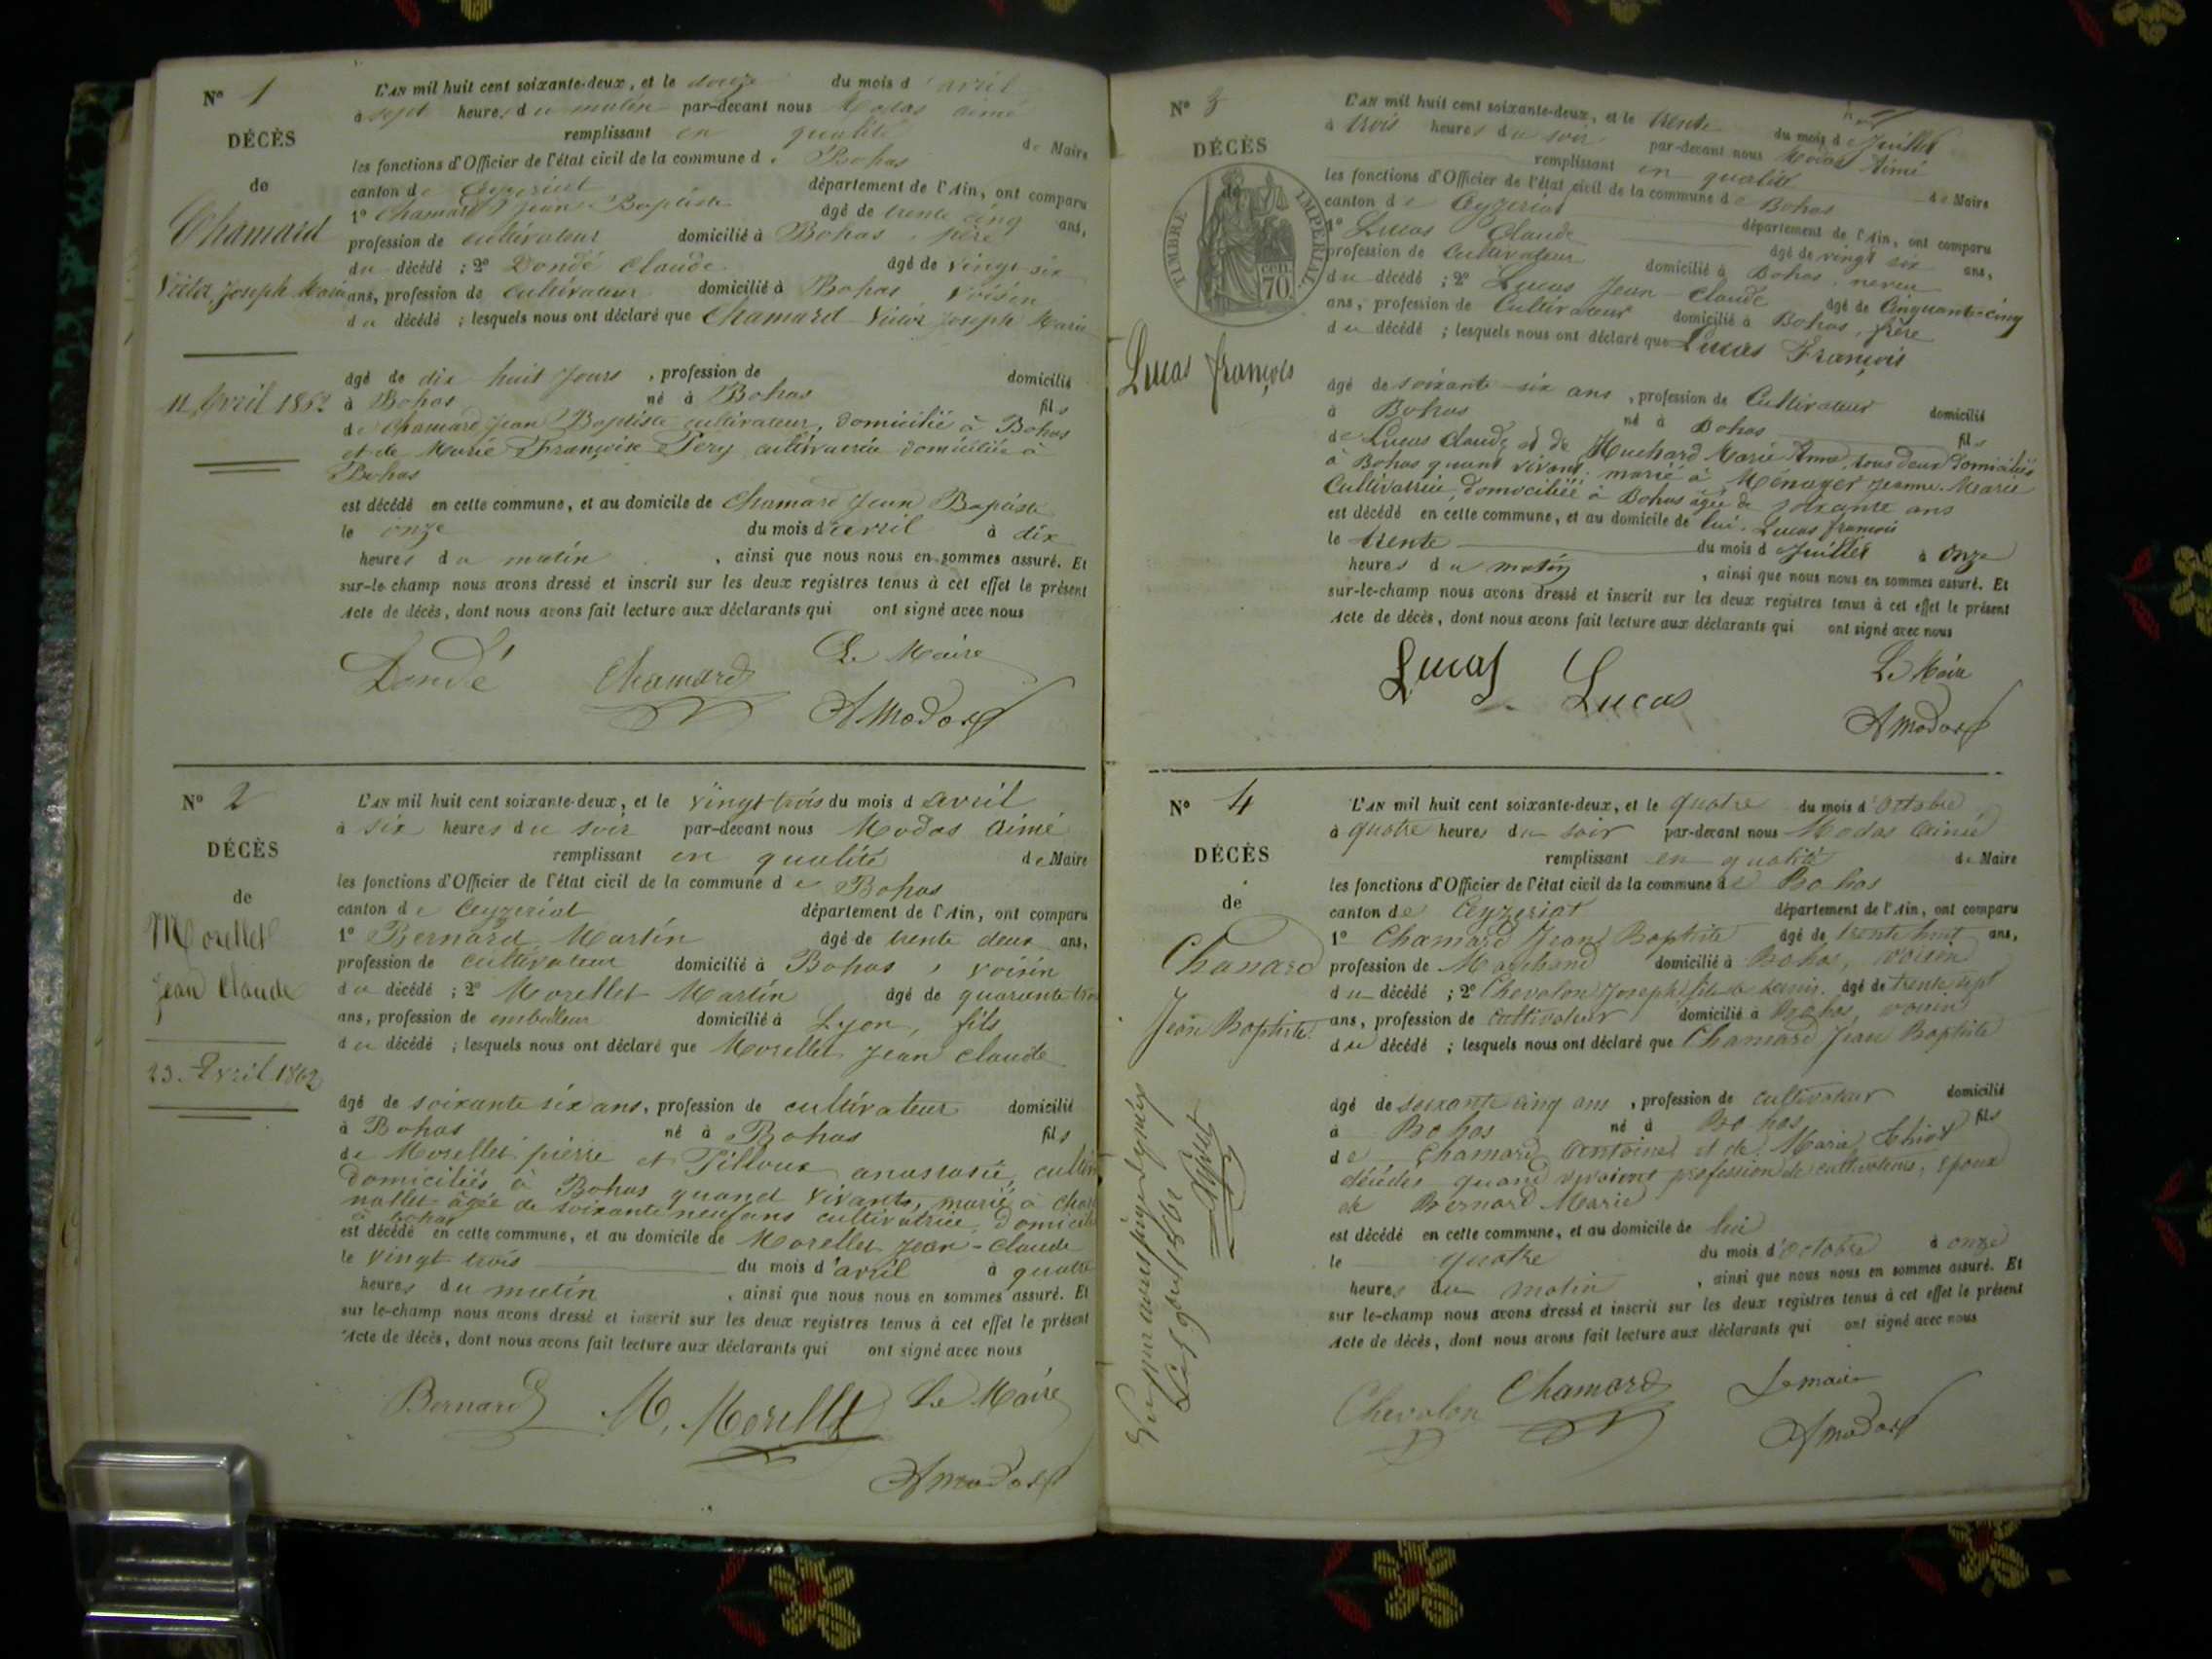 N° 1
DÉCÈS
de
Chamard
Victor Joseph Marie
11 Avril 1862
L'AN mil huit cent soixante-deux, et le douze du mois d'avril
à sept heures du matin par-devant nous Modas aimé
remplissant en qualité de Maire
les fonctions d'Officier de l'état civil de la commune de Bohas
canton de Ceyzeriat département de l'Ain, ont comparu
1° Chamard Jean Baptiste âgé de trente cinq ans,
profession de cultivateur domicilié à Bohas, père
du décédé ; 2° Dondé Claude âgé de vingt six
ans, profession de cultivateur domicilié à Bohas voisin
du décédé ; lesquels nous ont déclaré que Chamard Victor Joseph Marie
âgé de dix huit jours, profession de domicilié
à Bohas né à Bohas fils
de Chamard Jean Baptiste cultivateur, domicilié à Bohas
et de Marie Françoise Pery cultivatrice domiciliée à
Bohas
est décédé en cette commune, et au domicile de Chamard Jean Baptiste
le onze du mois d'avril à dix
heures du matin, ainsi que nous nous en sommes assuré. Et
sur-le-champ nous avons dressé et inscrit sur les deux registres tenus à cet effet le présent
Acte de décès, dont nous avons fait lecture aux déclarants qui ont signé avec nous
Le Maire
Dondé Chamard AModas
N° 2
DÉCÈS
de
Morellet
Jean Claude
23 Avril 1862
L'AN mil huit cent soixante-deux, et le vingt trois du mois d'avril
à six heures du soir par-devant nous Modas Aimé
remplissant en qualité de Maire
les fonctions d'Officier de l'état civil de la commune de Bohas
canton de Ceyzeriat département de l'Ain, ont comparu
1° Bernard Martin âgé de trente deux ans,
profession de cultivateur domicilié à Bohas, voisin
du décédé ; 2° Morellet Martin âgé de quarante trois
ans, profession de emballeur domicilié à Lyon, fils
du décédé ; lesquels nous ont déclaré que Morellet Jean Claude
âgé de soixante six ans, profession de cultivateur domicilié
à Bohas né à Bohas fils
de Morellet pierre et Pilloux anastasie,
domiciliés à Bohas quand vivants, marié à
nallet âgée de soixante neuf ans cultivatrice
à Bohas
est décédé en cette commune, et au domicile de Morellet Jean-Claude
le vingt trois du mois d'avril à quatre
heures du matin, ainsi que nous nous en sommes assuré. Et
sur le-champ nous avons dressé et inscrit sur les deux registres tenus à cet effet le présent
Acte de décès, dont nous avons fait lecture aux déclarants qui ont signé avec nous
Bernard M. Morellet Le Maire
AModas
N° 3
DÉCÈS
de
TIMBRE IMPERIAL
70
Lucas françois
L'AN mil huit cent soixante-deux, et le trente du mois de Juillet
à trois heures du soir par-devant nous Modas Aimé
remplissant en qualité de Maire
les fonctions d'Officier de l'état civil de la commune de Bohas
canton de Ceyzeriat département de l'Ain, ont comparu
1° Lucas Claude âgé de vingt six ans,
profession de Cultivateur domicilié à Bohas, neveu
du décédé ; 2° Lucas Jean-Claude âgé de Cinquante cinq
ans, profession de Cultivateur domicilié à Bohas, frère
du décédé ; lesquels nous ont déclaré que Lucas François
âgé de soixante six ans, profession de Cultivateur domicilié
à Bohas né à Bohas fils
de Lucas Claude et de Huchard Marie Anne, tous deux domiciliés
à Bohas quand vivant. marié à Ménager Jeanne-Marie
Cultivatrice, domiciliée à Bohas âgée de soixante ans
est décédé en cette commune, et au domicile de lui. Lucas françois
le trente du mois de Juillet à onze
heures du matin, ainsi que nous nous en sommes assuré. Et
sur-le-champ nous avons dressé et inscrit sur les deux registres tenus à cet effet le présent
Acte de décès, dont nous avons fait lecture aux déclarants qui ont signé avec nous
Lucas Lucas Le Maire
AModas
N° 4
DÉCÈS
de
Chamard
Jean Baptiste
L'AN mil huit cent soixante-deux, et le quatre du mois d'Octobre
à quatre heures du soir par-devant nous Modas Aimé
remplissant en qualité de Maire
les fonctions d'Officier de l'état civil de la commune de Bohas
canton de Ceyzeriat département de l'Ain, ont comparu
1° Chamard Jean Baptiste âgé de trente huit ans,
profession de Marchand domicilié à Bohas, voisin
du décédé ; 2° Chevalon Joseph fils de Denis. âgé de trente sept
ans, profession de cultivateur domicilié à Bohas, voisin
du décédé ; lesquels nous ont déclaré que Chamard Jean Baptiste
âgé de soixante cinq ans, profession de cultivateur domicilié
à Bohas né à Bohas fils
de Chamard Antoine et de Marie
décédés quand vivaient profession de cultivateurs, époux
de Bernard Marie
est décédé en cette commune, et au domicile de lui
le quatre du mois d'octobre à onze
heures du matin, ainsi que nous nous en sommes assuré. Et
sur le-champ nous avons dressé et inscrit sur les deux registres tenus à cet effet le présent
Acte de décès, dont nous avons fait lecture aux déclarants qui ont signé avec nous
Chevalon Chamard Le maire
AModas